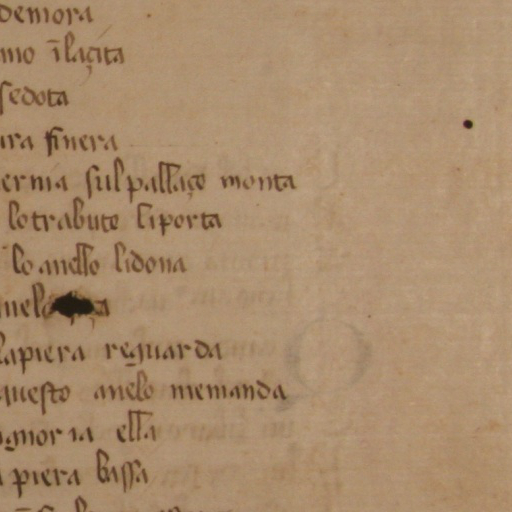 demora
mo ī laçita
sedota
ura finera
ernia sul pallaço monta
lo trabuto li porta
lo anello li dona
la piera reguarda
questo anelo me manda
ignoria ella
piera bassa